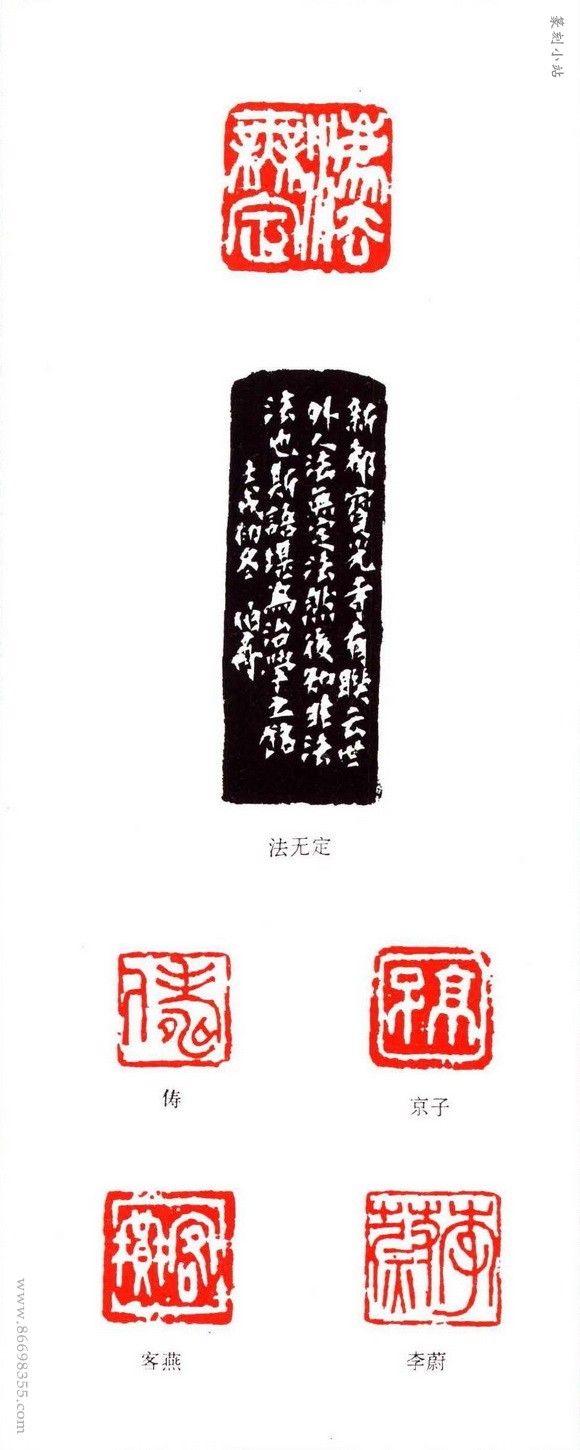 篆刻小站
法無定
新都寶光寺有聯云世
外人法無定法然後知非法
法也斯語堪為治學之銘
壬戌初冬 伯舜
法无定
俦
京子
客燕
李蔚
www.86698355.com